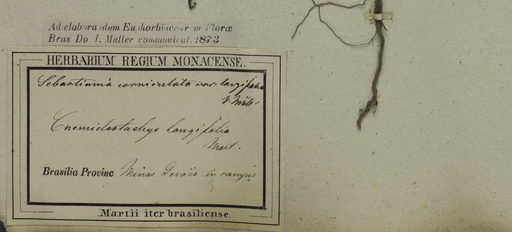 Ad elaborandum Euphorbiacearum Florae
Bras Do J. Müller communicat. 1873
HERBARIUM REGIUM MONACENSE.
Sebastiania corniculata var. longifolia
Müll.
Cnemidostachys longifolia
Mart.
Brasilia Provinc Minas Geraës in campis
Martii iter brasiliense.